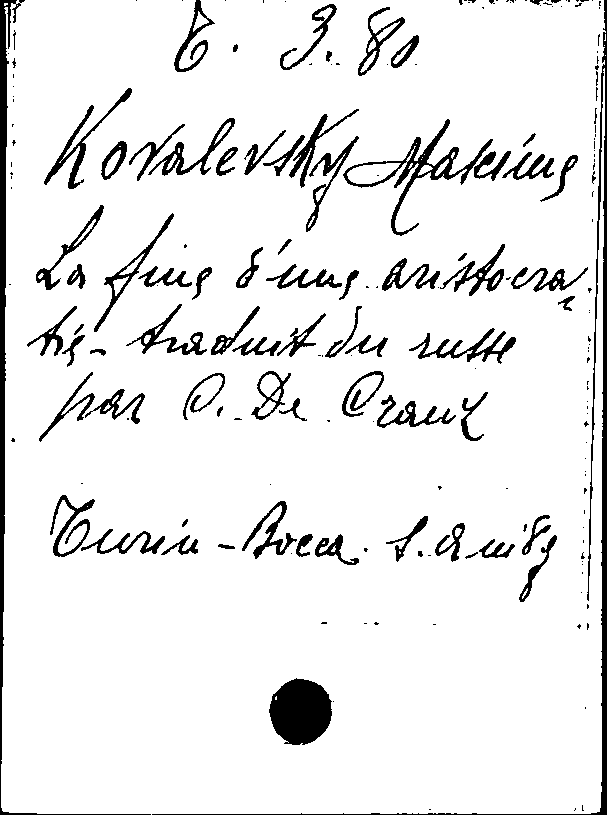 E. 3.80
Kovalevsky Maxime
La fine d'une aristocra-
tie - traduit du russe
par C. De Cranz
Turin - Bocca. S.